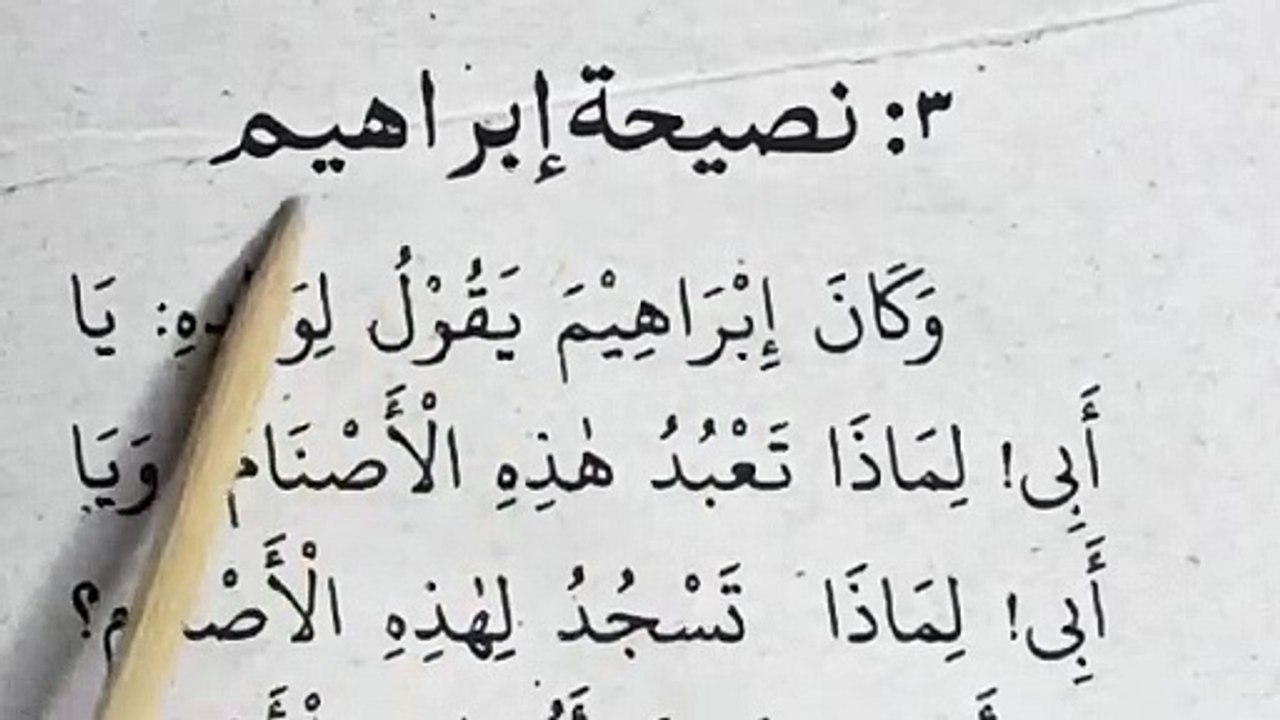 ٣: نصيحة إبراهيم
وَكَانَ إِبْرَاهِيْمَ يَقُوْلُ لِوَالِدِهِ: يَا
أَبِى! لِمَاذَا تَعْبُدُ هٰذِهِ الْأَصْنَام وَيَا
أَبِى! لِمَاذَا تَسْجُدُ لِهٰذِهِ الْأَصْنَام؟